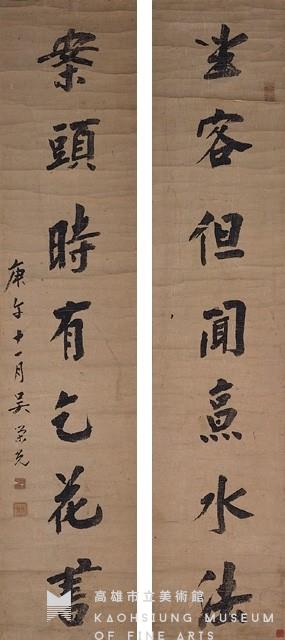 坐客但聞烹水法
案頭時有乞花書
庚午十一月吳榮光
高雄市立美術館
KAOHSIUNG MUSEUM
OF FINE ARTS